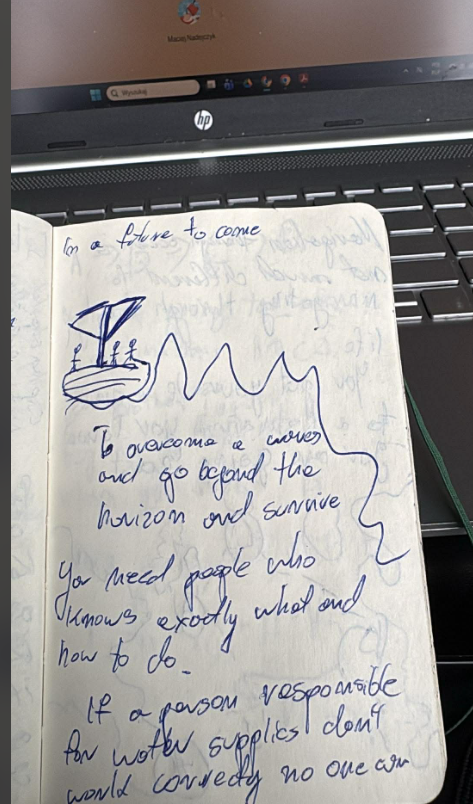 Maciej Nadejczyk
Wyszukaj
hp
In a future to come
To overcome a waves
and go beyond the
horizon and survive
You need people who
knows exactly what and
how to do.
If a person responsible
for water supplies don't
world correctly no one can